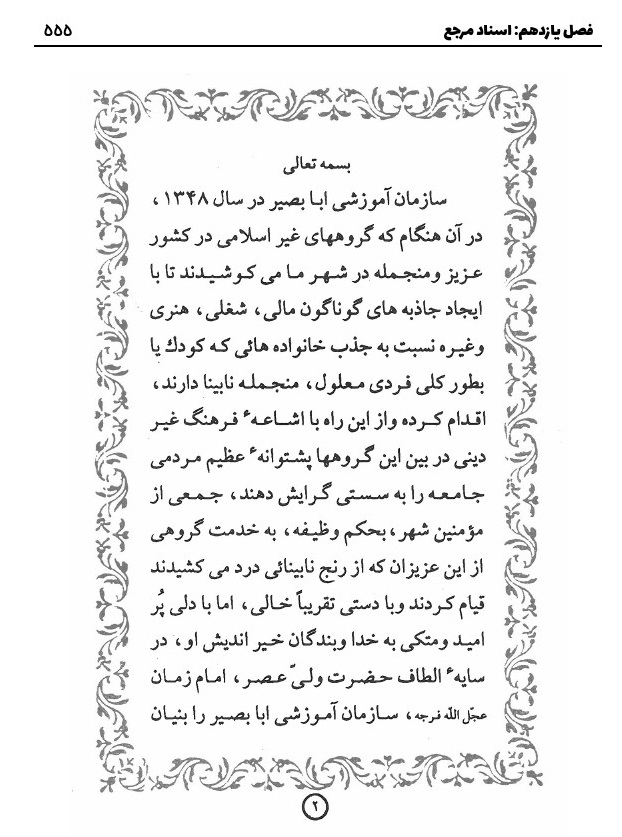 فصل یازدهم: اسناد مرجع ۵۵۵
بسمه تعالی
سازمان آموزشی ابا بصیر در سال ۱۳۴۸ ،
در آن هنگام که گروههای غیر اسلامی در کشور
عزیز ومنجمله در شهر ما می کوشیدند تا با
ایجاد جاذبه های گوناگون مالی ، شغلی ، هنری
وغیره نسبت به جذب خانواده هائی که کودك یا
بطور کلی فردی معلول ، منجمله نابینا دارند ،
اقدام کرده واز این راه با اشاعهٔ فرهنگ غیر
دینی در بین این گروهها پشتوانهٔ عظیم مردمی
جامعه را به سستی گرایش دهند ، جمعی از
مؤمنین شهر ، بحکم وظیفه ، به خدمت گروهی
از این عزیزان که از رنج نابینائی درد می کشیدند
قیام کردند وبا دستی تقریباً خالی ، اما با دلی پُر
امید ومتکی به خدا وبندگان خیر اندیش او ، در
سایهٔ الطاف حضرت ولیّ عصر ، امام زمان
عجّل اللّه فرجه ، سازمان آموزشی ابا بصیر را بنیان
۲